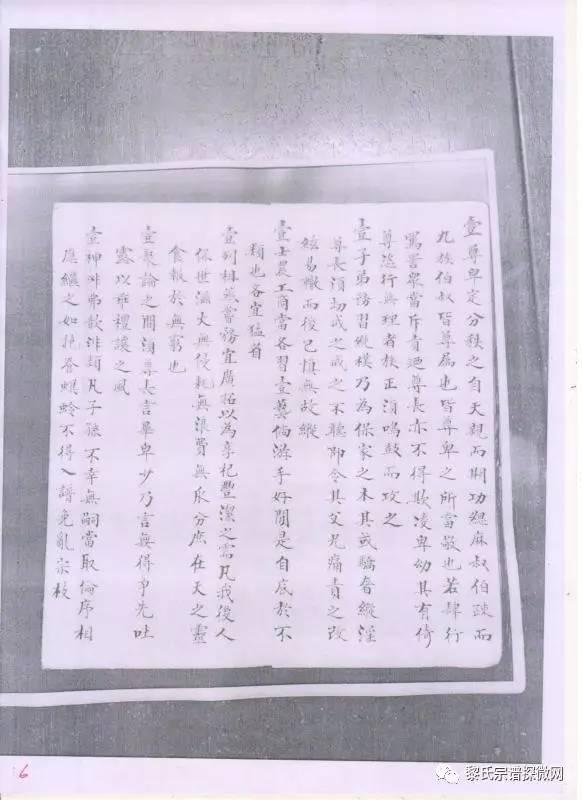 壹尊卑定分秩之自天親而期功緦麻叔伯疎而
九族伯叔皆尊屬也皆尊卑之所當敬也若肆行
罵詈衆當斥責迺尊長亦不得欺凌卑幼其有倚
尊恣行無理者秩正須鳴鼓而攻之
壹子弟謗習縱樸乃為保家之本其或驕奢縱淫
尊長須切戒之戒之不聽即令其父兄痛責之改
絃易轍而後已慎無故縱
壹士農工商當各習壹藝倘游手好閒是自底於不
類也各宜猛省
壹列祖蒸嘗務宜廣拓以為享祀豐潔之需凡我後人
保世滋大無侵耗無浪費無瓜分庶在天之靈
食報於無窮也
壹聚論之間須尊長言畢卑少乃言無得爭先吐
露以乖禮讓之風
壹神非弗歆誹類凡子孫不幸無嗣當取倫序相
應繼之如抱養螟蛉不得入譜免亂宗枝
6
黎氏宗谱探微网